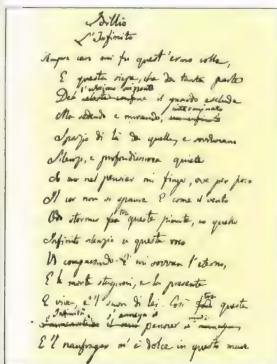 Idillio
L'Infinito
Sempre caro mi fu quest'ermo colle,
E questa siepe, che da tanta parte
l'ultimo orizzonte
Del celeste confine il guardo esclude
interminato
Ma sedendo e mirando,
Spazio di là da quella, e sovrumani
Silenzi, e profondissima quiete
Io nel pensier mi fingo, ove per poco
Il cor non si spaura. E come il vento
Odo stormir tra queste piante, io quello
Infinito silenzio a questa voce
Vo comparando: E mi sovvien l'eterno,
E le morte stagioni, e la presente
E viva, e 'l suon di lei. Così tra questa
Infinità s'annega il
pensier
E 'l naufragar m'è dolce in questo mare